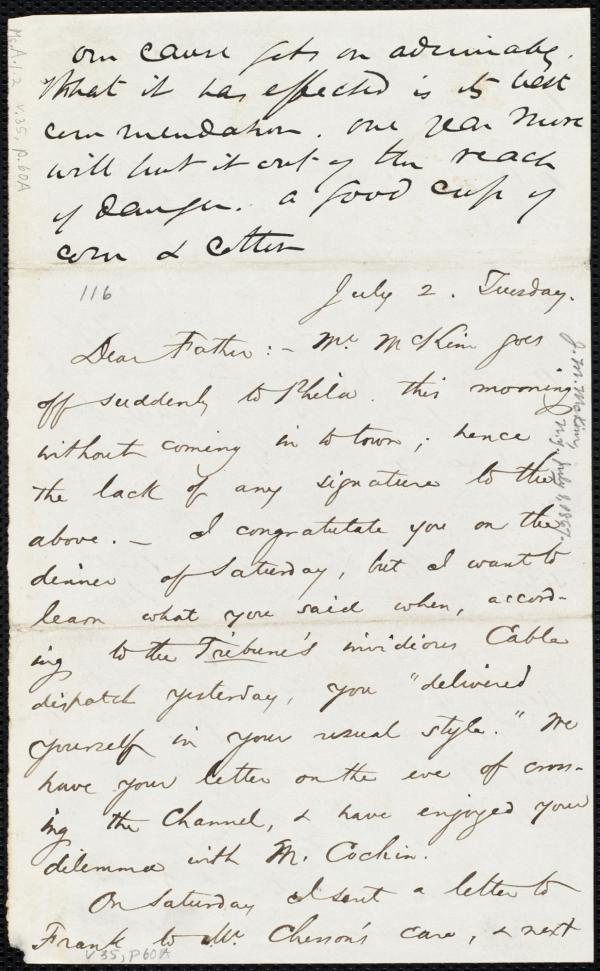 our cause gets on admirably.
What it has effected is its best
commendation. One year more
will put it out of the reach
of danger. A good cup of
corn & cotton
116
July 2. Tuesday.
Dear Father: – Mr. McKim goes
off suddenly to Phila. this morning
without coming in to town; hence
the lack of any signature to the
above. – I congratulate you on the
dinner of Saturday, but I want to
learn what you said when, accord-
ing to the Tribune's invidious Cable
dispatch yesterday, you "delivered
yourself in your usual style." We
have your letter on the eve of cross-
ing the Channel, & have enjoyed your
dilemma with M. Cochin.
On Saturday I sent a letter to
Frank to Mr. Chesson's care, & next
Ms.A.1.2 v.35, p.60A
J. M. McKim
July 1, 1867.
v35, p60A